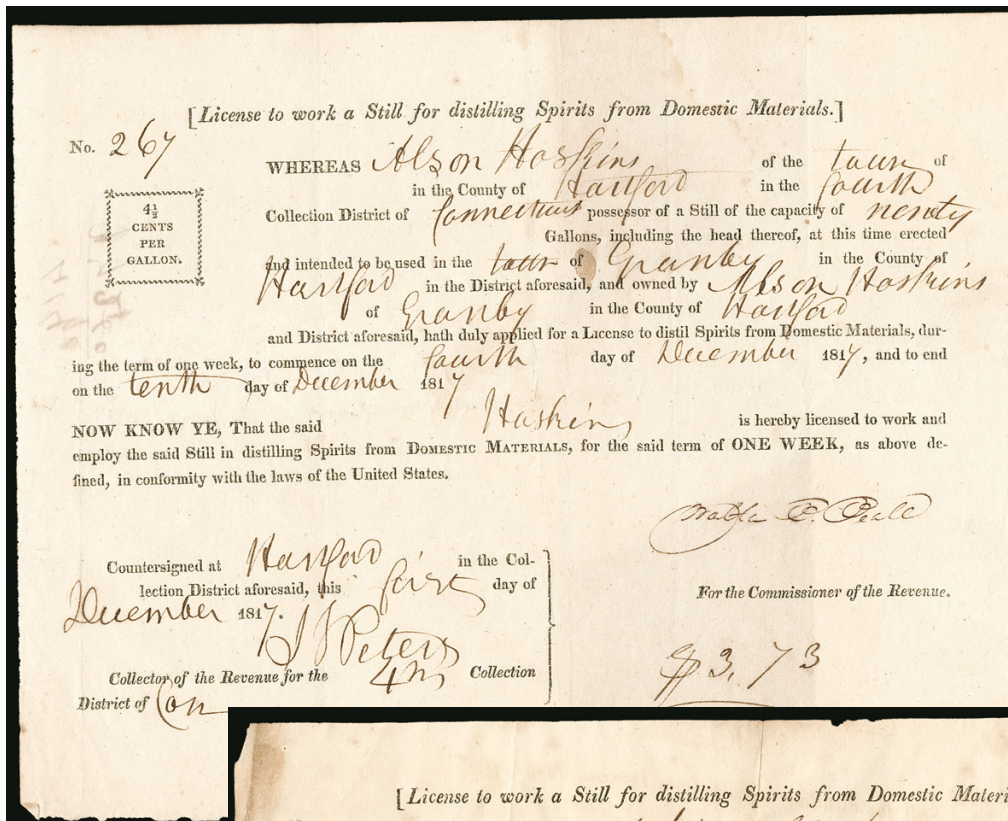 [License to work a Still for distilling Spirits from Domestic Materials.]
No. 267
WHEREAS Alson Hoskins of the town of
in the County of Hartford in the fourth
Collection District of Connecticut possessor of a Still of the capacity of
Gallons, including the head thereof, at this time erected
and intended to be used in the town of Granby in the County of
Hartford in the District aforesaid, and owned by Alson Hoskins
of Granby in the County of Hartford
and District aforesaid, hath duly applied for a License to distil Spirits from Domestic Materials, dur-
ing the term of one week, to commence on the fourth day of December 1817, and to end
on the tenth day of December 1817
NOW KNOW YE, That the said Hoskins is hereby licensed to work and
employ the said Still in distilling Spirits from DOMESTIC MATERIALS, for the said term of ONE WEEK, as above de-
fined, in conformity with the laws of the United States.
4½
CENTS
PER
GALLON.
Countersigned at Hartford in the Col-
lection District aforesaid, this first day of
December 1817.
J S Peters
Collector of the Revenue for the 4th Collection
District of Con
For the Commissioner of the Revenue.
$3,73
[License to work a Still for distilling Spirits from Domestic Materi